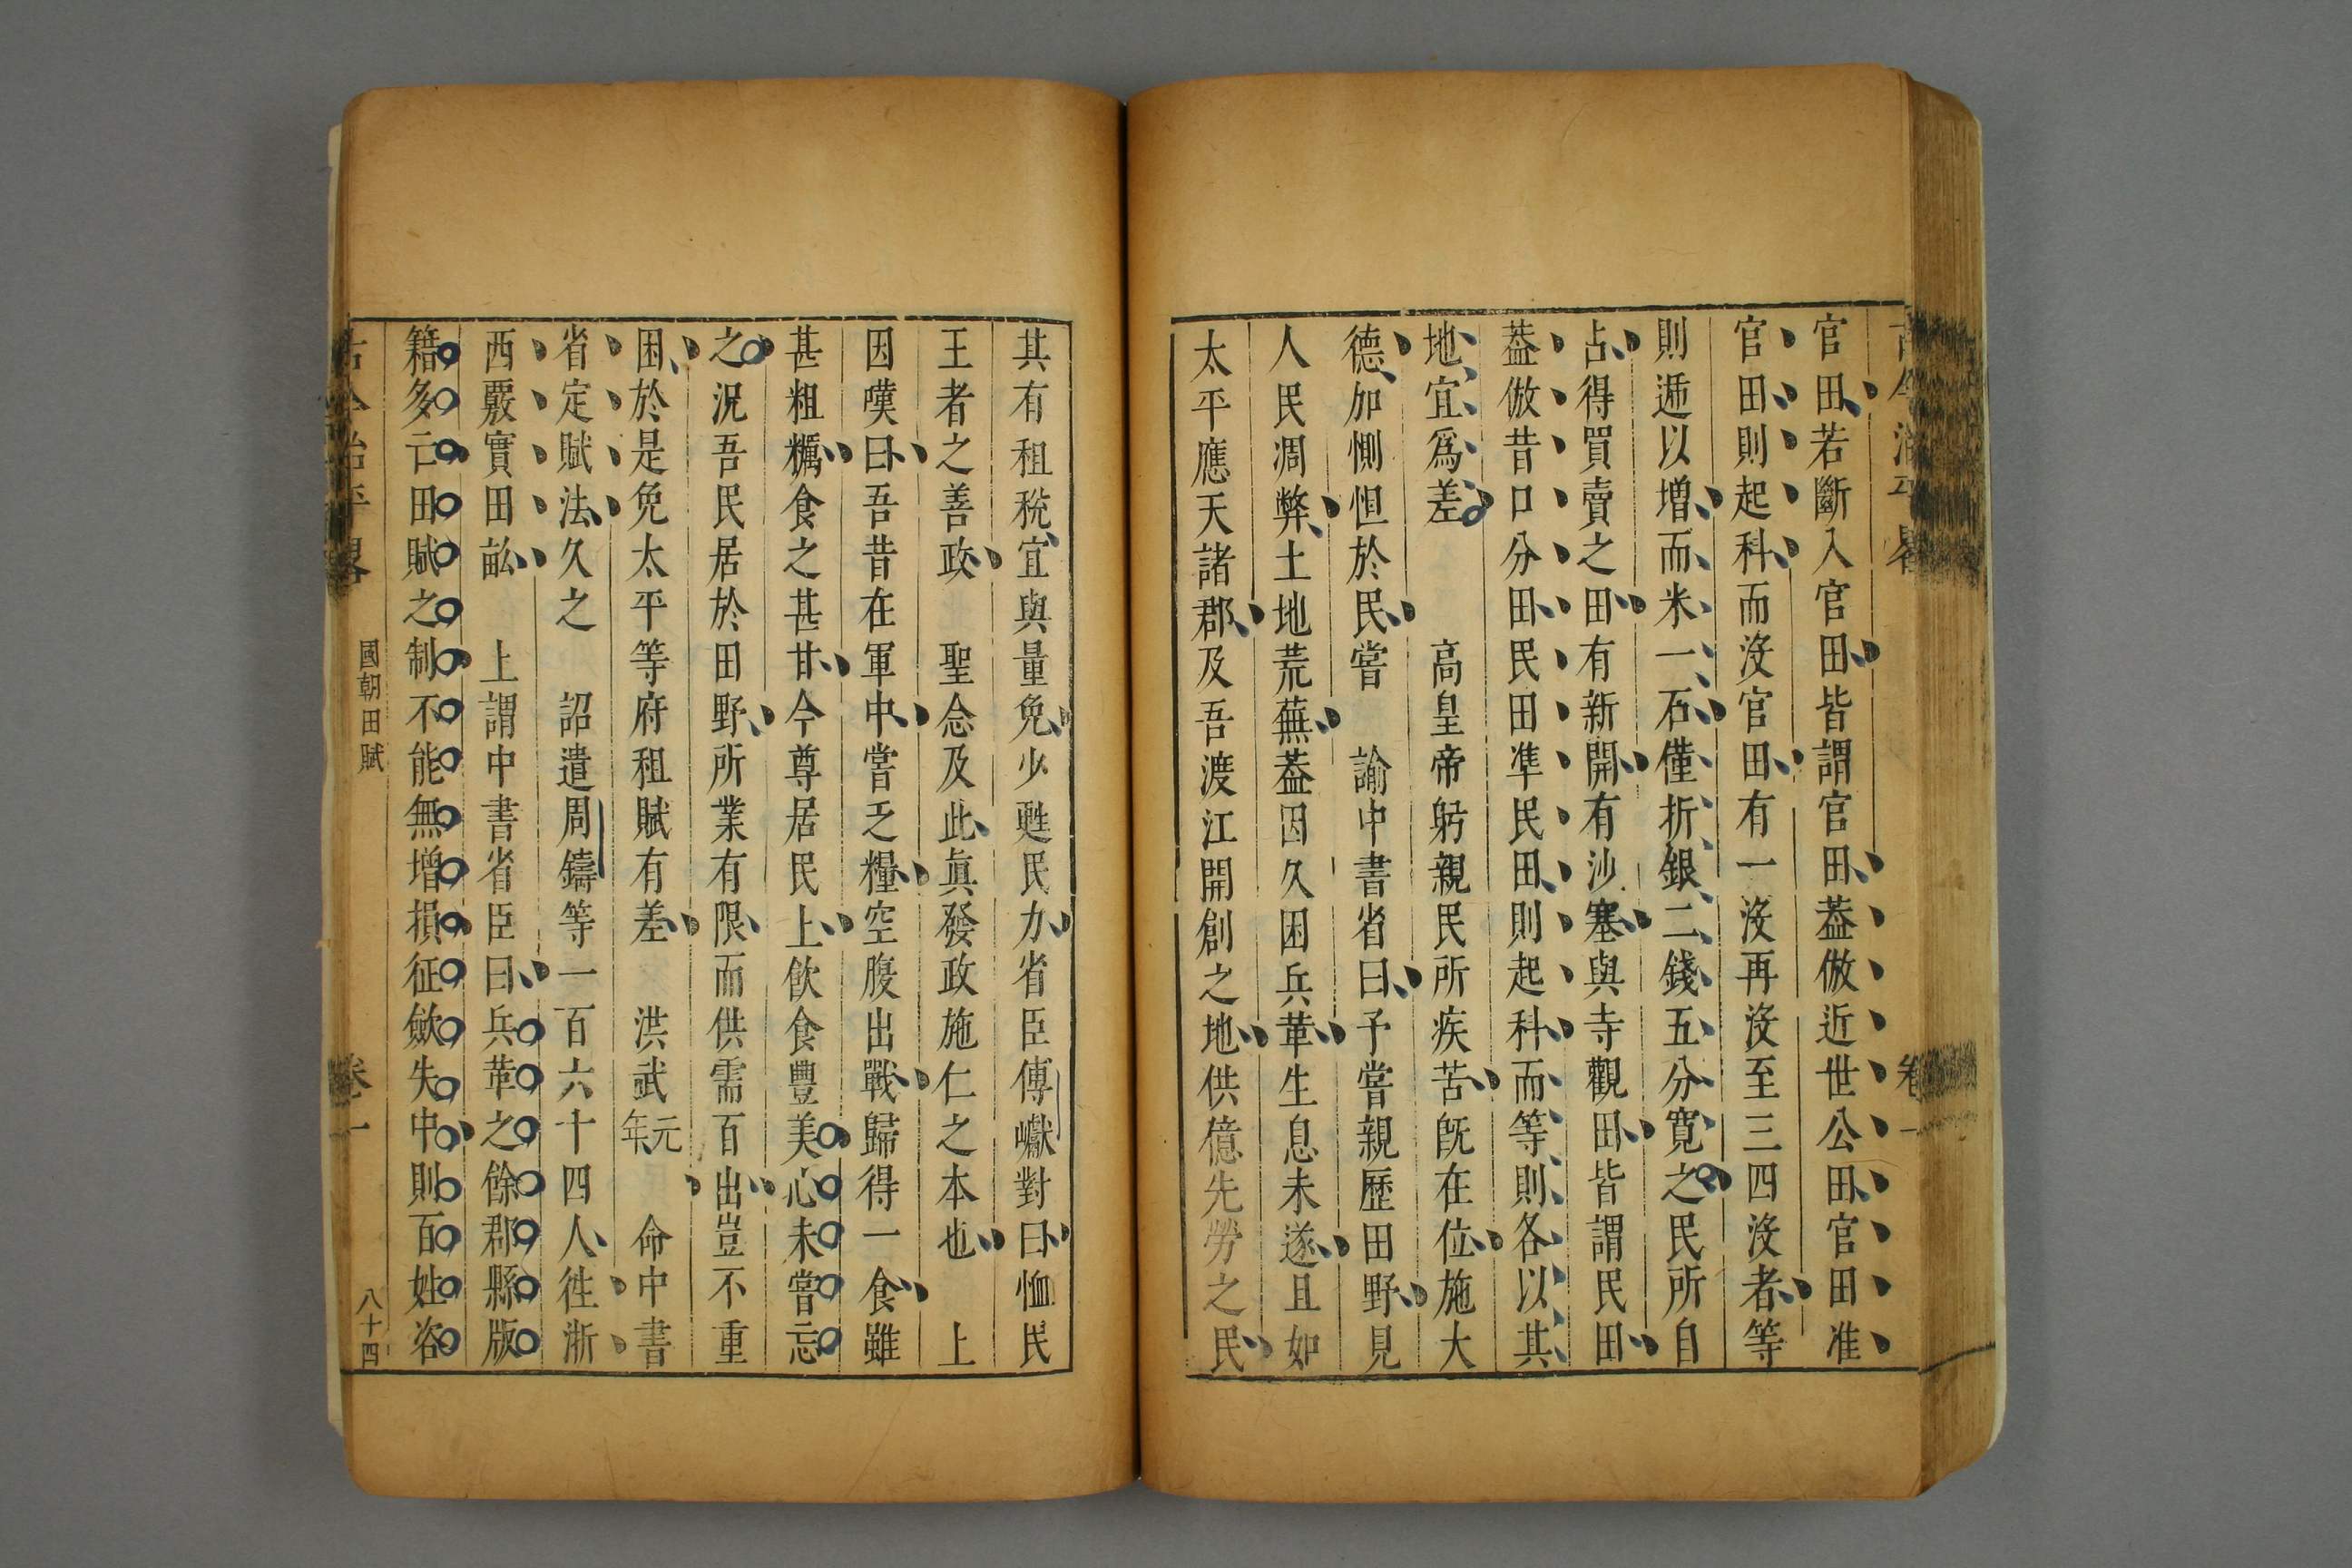 古今治平畧 卷一
官田若斷入官田皆謂官田葢倣近世公田官田准
官田則起科而沒官田有一沒再沒至三四沒者等
則遞以增而米一石僅折銀二錢五分寛之民所自
占得買賣之田有新開有沙塞與寺觀田皆謂民田
葢倣昔口分田民田準民田則起科而等則各以其
地宜爲差　　高皇帝躬親民所疾苦旣在位施大
德加惻怛於民嘗　諭中書省曰予嘗親歷田野見
人民凋弊土地荒蕪葢因久困兵革生息未遂且如
太平應天諸郡及吾渡江開創之地供億先勞之民
其有租稅宜與量免少甦民力省臣傅瓛對曰恤民
王者之善政　聖念及此眞發政施仁之本也　上
因嘆曰吾昔在軍中嘗乏糧空腹出戰歸得一食雖
甚粗糲食之甚甘今尊居民上飮食豐美心未嘗忘
之況吾民居於田野所業有限而供需百出豈不重
困於是免太平等府租賦有差　洪武元年　命中書
省定賦法久之　詔遣周鑄等一百六十四人徃浙
西覈實田畝　上謂中書省臣曰兵革之餘郡縣版
籍多亡田賦之制不能無增損征斂失中則百姓咨
古今治平畧 國朝田賦 卷一 八十四